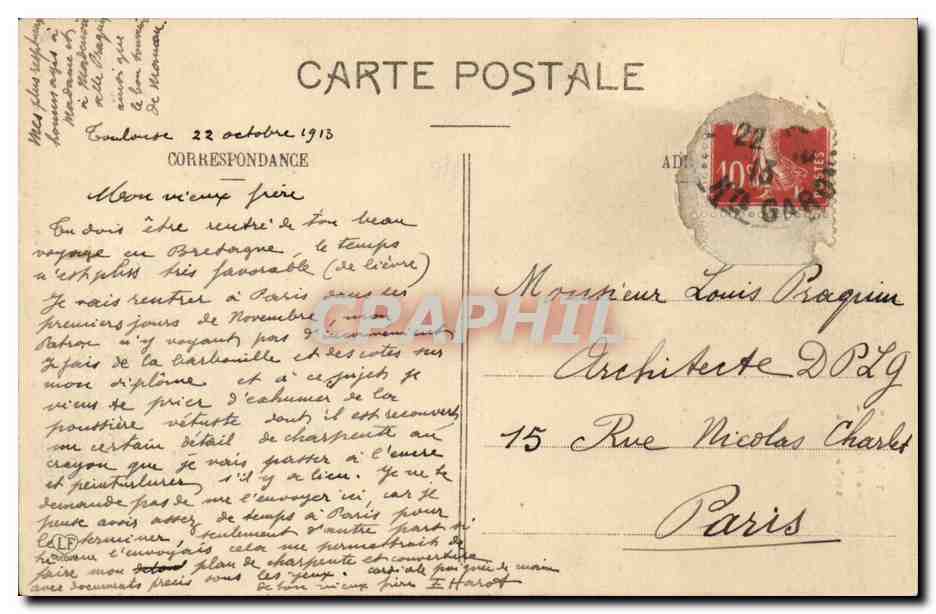 CARTE POSTALE
Mes plus respectueux
hommages à
Madame et
à Mademoi
selle
ainsi que
le bon souvenir
de Maman
Toulouse 22 octobre 1913
CORRESPONDANCE
AD
22
13
10c
POSTES
Hte GARONNE
Mon vieux frère
Tu dois être rentré de ton beau
voyage en Bretagne, le temps
n'est plus très favorable (de lièvre)
Je vais rentrer à Paris sous les
premiers jours de Novembre, mon
Patron n'y voyant pas d'inconvénient
Je fais de la barbouille et des cotes sur
mon diplôme et à ce sujet je
viens te prier d'exhumer de la
poussière vétuste dont il est recouvert
un certain détail de charpente au
crayon que je vais passer à l'encre
et peinturlurer s'il y a lieu. Je ne te
demande pas de me l'envoyer ici, car je
pense avoir assez de temps à Paris pour
le terminer, seulement d'autre part si
tu me l'envoyais cela me permettrait de
faire mon plan de charpente et couverture
avec documents précis sous les yeux. Cordiale poignée de main
de ton vieux frère E Harot
LF
Monsieur Louis Praquin
Architecte DPLG
15 Rue Nicolas Charlet
Paris
CPAPHIL